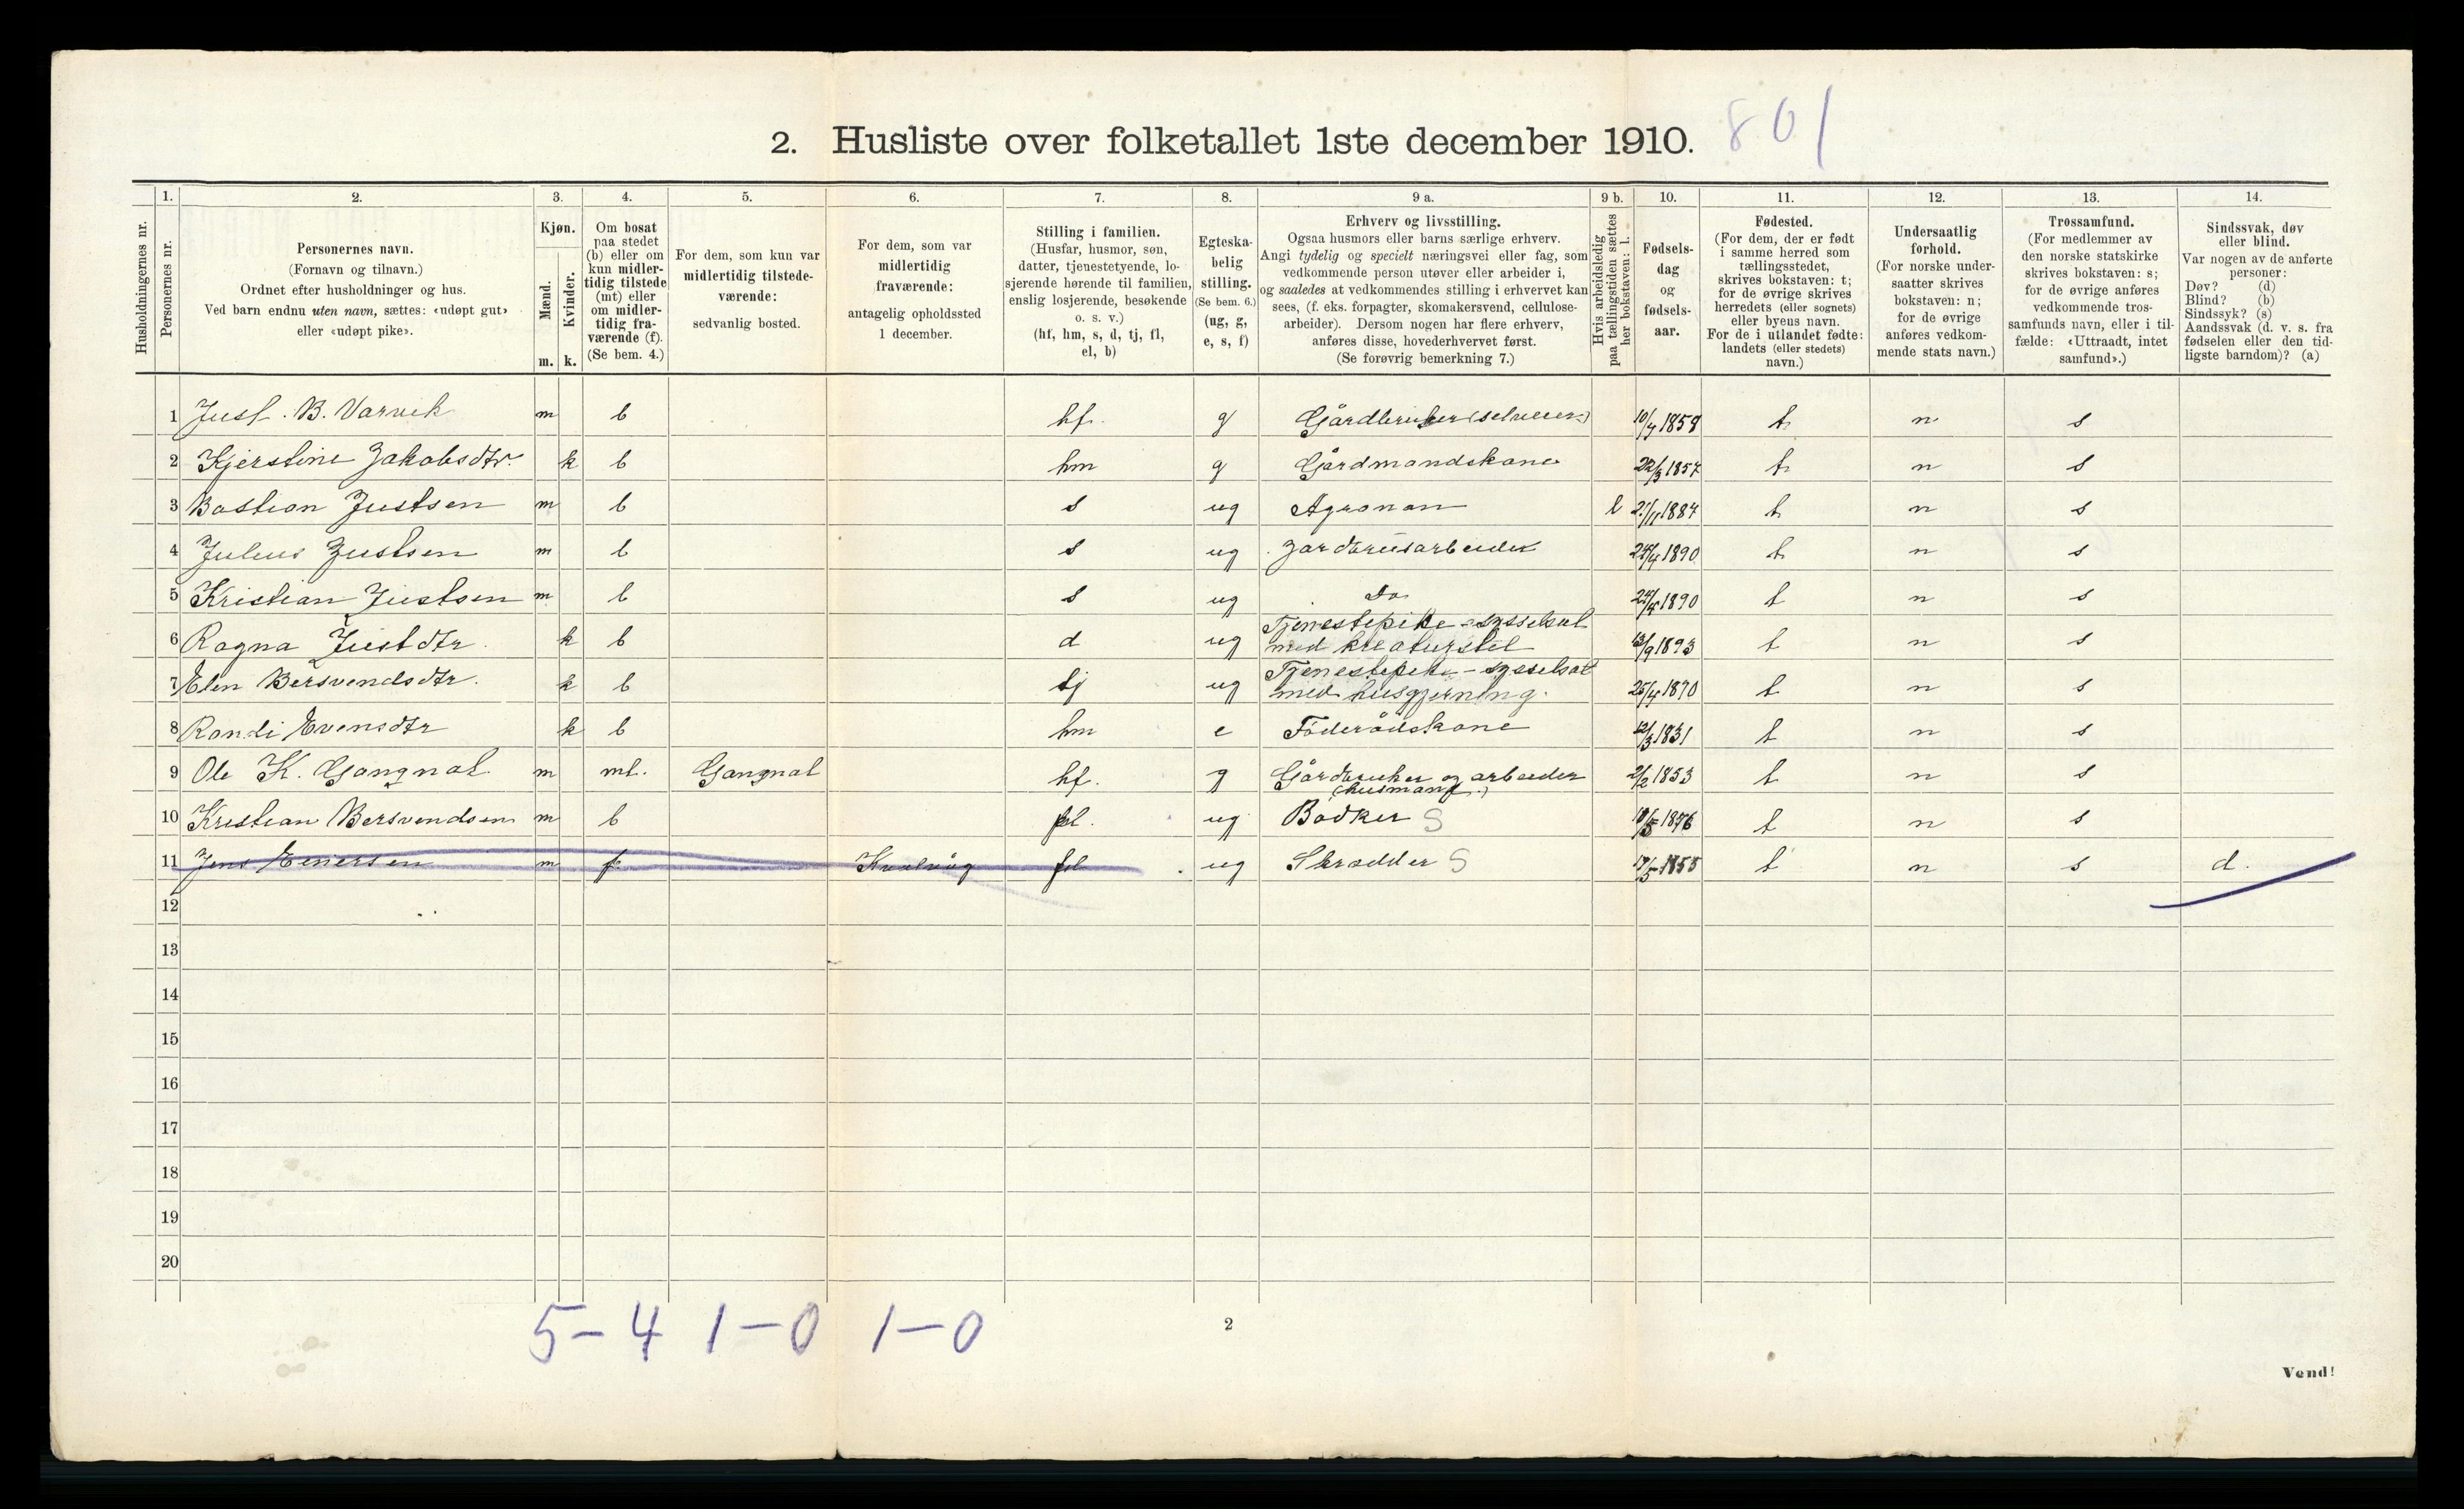 2. Husliste over folketallet 1ste december 1910. 801
Husholdningernes nr.
1. Personernes nr.
2. Personernes navn.
(Fornavn og tilnavn.)
Ordnet efter husholdninger og hus.
Ved barn endnu uten navn, sættes: «udøpt gut»
eller «udøpt pike».
3. Kjøn.
Mænd. m.
Kvinder. k.
4. Om bosat
paa stedet
(b) eller om
kun midler-
tidig tilstede
(mt) eller
om midler-
tidig fra-
værende (f).
(Se bem. 4.)
5. For dem, som kun var
midlertidig tilstede-
værende:
sedvanlig bosted.
6. For dem, som var
midlertidig
fraværende:
antagelig opholdssted
1 december.
7. Stilling i familien.
(Husfar, husmor, søn,
datter, tjenestetyende, lo-
sjerende hørende til familien,
enslig losjerende, besøkende
o. s. v.)
(hf, hm, s, d, tj, fl,
el, b)
8. Egteska-
belig
stilling.
(Se bem. 6.)
(ug, g,
e, s, f)
9 a. Erhverv og livsstilling.
Ogsaa husmors eller barns særlige erhverv.
Angi tydelig og specielt næringsvei eller fag, som
vedkommende person utøver eller arbeider i,
og saaledes at vedkommendes stilling i erhvervet kan
sees, (f. eks. forpagter, skomakersvend, cellulose-
arbeider). Dersom nogen har flere erhverv,
anføres disse, hovederhvervet først.
(Se forøvrig bemerkning 7.)
9 b. Hvis arbeidsledig
paa tællingstiden sættes
her bokstaven: l.
10. Fødsels-
dag
og
fødsels-
aar.
11. Fødested.
(For dem, der er født
i samme herred som
tællingsstedet,
skrives bokstaven: t;
for de øvrige skrives
herredets (eller sognets)
eller byens navn.
For de i utlandet fødte:
landets (eller stedets)
navn.)
12. Undersaatlig
forhold.
(For norske under-
saatter skrives
bokstaven: n;
for de øvrige
anføres vedkom-
mende stats navn.)
13. Trossamfund.
(For medlemmer av
den norske statskirke
skrives bokstaven: s;
for de øvrige anføres
vedkommende tros-
samfunds navn, eller i til-
fælde: «Uttraadt, intet
samfund».)
14. Sindssvak, døv
eller blind.
Var nogen av de anførte
personer:
Døv? (d)
Blind? (b)
Sindssyk? (s)
Aandssvak (d. v. s. fra
fødselen eller den tid-
ligste barndom)? (a)
1 Just. B. Varvik m b hf. g Gårdbruker (selveier) 10/7 1858 t n s
2 Kjerstine Jakobsdtr. k b hm g Gårdmandskone 22/3 1857 t n s
3 Bastian Justsen m b s ug Agronom l 1884 t n s
4 Julius Justsen m b s ug Jordbrusarbeider 24/4 1890 t n s
5 Kristian Justsen m b s ug Do 24/4 1890 t n s
6 Ragna Justdtr. k b d ug Tjenestepike - sysselsat
med kreaturstel 13/9 1893 t n s
7 Elen Bersvendsdtr. k b tj ug Tjenestepike - sysselsat
med husgjerning. 25/4 1870 t n s
8 Randi Evensdtr k b hm e Föderådskone 12/3 1831 t n s
9 Ole K. Gangnat m mt. Gangnat hf. g Gårdbruker og arbeider
(husmand.) 2/2 1853 t n s
10 Kristian Bersvendsen m b fl. ug Bödker S 18/5 1876 t n s
11 Jens Einersen m f. Kvalvåg fl ug Skrædder S 1855 t n s d.
12
13
14
15
16
17
18
19
20
5-4 1-0 1-0
2
Vend!